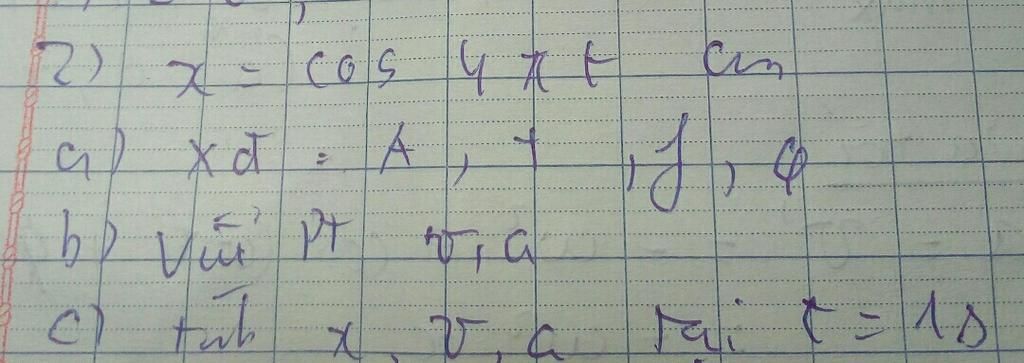 2) x = cos 4πt cm
a) xđ : A, T, f, φ
b) Viết Pt v, a
c) tính x, v, a tại t = 1s